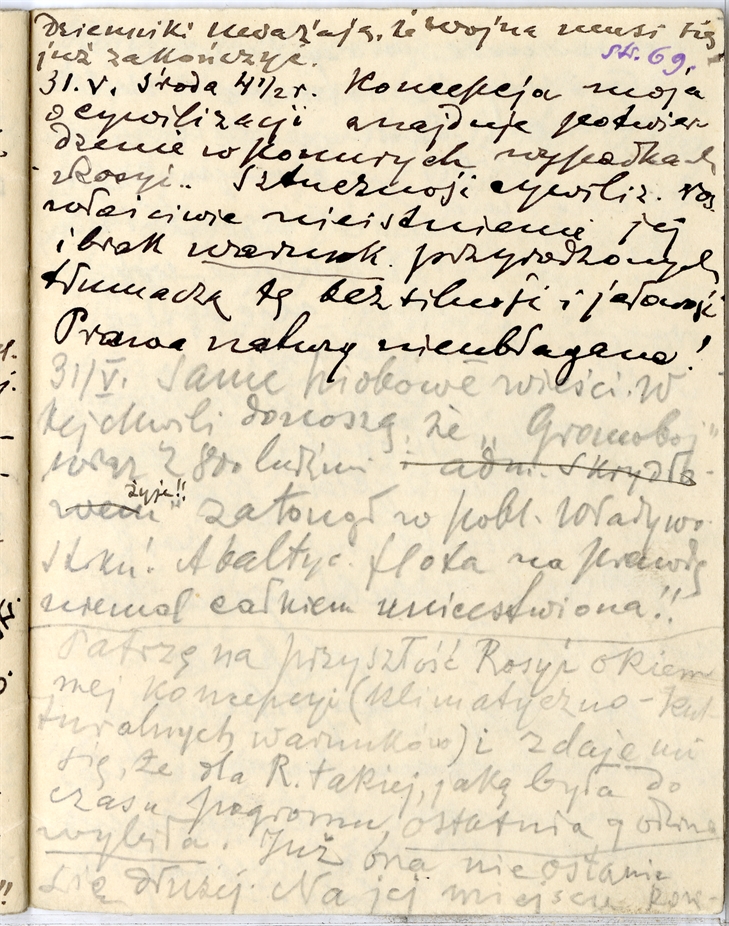 Dzienniki uważają, że wojna musi się
już zakończyć.
str. 69.
31. V. Środa 4 1/2 r. Koncepcja moja
o cywilizacji znajduje potwier-
dzenie w ponurych wypadkach
z Rosyi. Sztuczność cywiliz. ros.
właściwie nieistnienie jej
i brak warunk. przyrodzonych
tłumaczą tę bezsilność i jałowość
Prawa natury nieubłagane!
31/V. Same hiobowe wieści. W
tej chwili donoszą, że „Gromoboj"
wraz z 800 ludźmi i adm. Skrydło-
wem" żyje!! zatonął w pobl. Władywo-
stoku! A bałtyc. flota na prawdę
niemal całkiem unicestwiona!!
Patrzę na przyszłość Rosyi okiem
mej koncepcyi (klimatyczno-kul-
turalnych warunków) i zdaje mi
się, że dla R. takiej, jaką była do
czasu pogromu, ostatnia godzina
wybiła. Już ona nie ostanie
się dłużej. Na jej miejscu